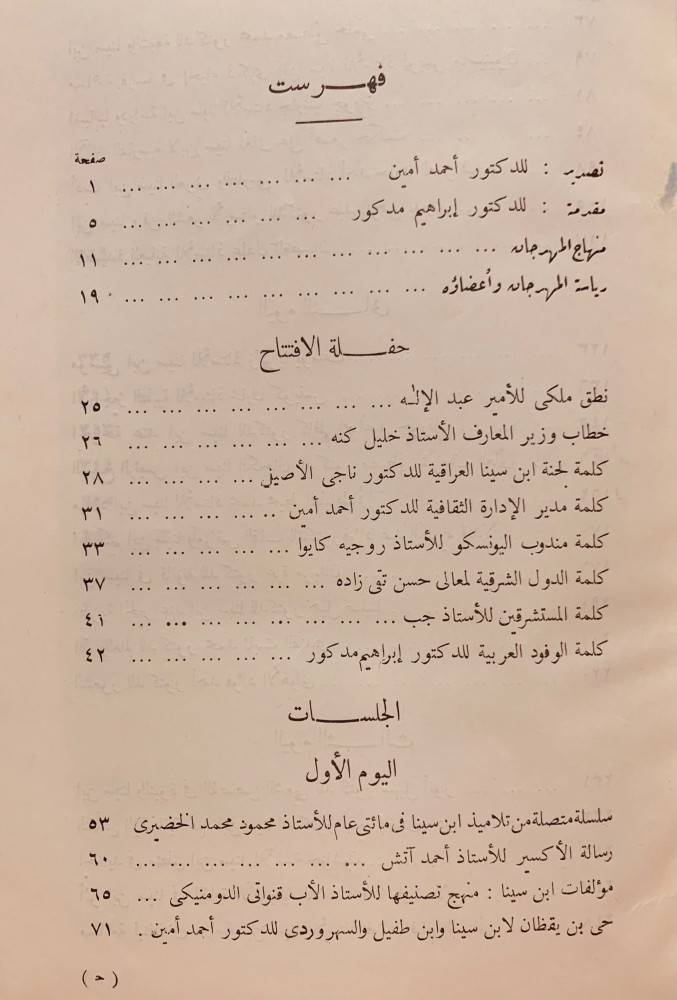 فهرست
صفحة
تصدير : للدكتور أحمد أمين ... ... ... ... ... ... ... ... ١
مقدمة : للدكتور إبراهيم مدكور ... ... ... ... ... ... ... ٥
منهاج المهرجان ... ... ... ... ... ... ... ... ... ... ... ... ١١
رياسة المهرجان وأعضاؤه ... ... ... ... ... ... ... ... ... ... ١٩
حفلة الافتتاح
نطق ملكى للأمير عبد الإله ... ... ... ... ... ... ... ... ... ٢٥
خطاب وزير المعارف الأستاذ خليل كنه ... ... ... ... ... ... ... ٢٦
كلمة لجنة ابن سينا العراقية للدكتور ناجى الأصيل ... ... ... ... ... ٢٨
كلمة مدير الإدارة الثقافية للدكتور أحمد أمين .. ... ... ... ... ٣١
كلمة مندوب اليونسكو للأستاذ روجيه كايوا ... ... ... ... ... ... ٣٣
كلمة الدول الشرقية لمعالى حسن تقى زاده ... ... ... ... ... ... ... ٣٧
كلمة المستشرقين للأستاذ جب ... ... ... ... ... ... ... ... ... ٤١
كلمة الوفود العربية للدكتور إبراهيم مدكور ... ... ... ... ... ... ٤٢
الجلسات
اليوم الأول
سلسلة متصلة من تلاميذ ابن سينا فى مائتى عام للأستاذ محمود محمد الخضيرى ٥٣
رسالة الأكسير للأستاذ أحمد آتش ... ... ... ... ... ... ... ... ٦٠
مؤلفات ابن سينا : منهج تصنيفها للأستاذ الأب قنواتى الدومنيكى ... ٦٥
حى بن يقظان لابن سينا وابن طفيل والسهروردى للدكتور أحمد أمين . ٧١
( ح )